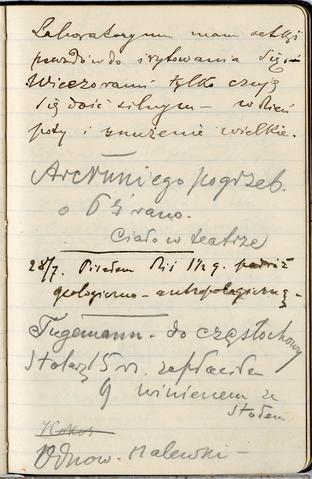 Laboratoryum mam setki
powodów do irytowania się –
Wieczorami tylko czuję
się dość silnym – w dzień
poty i znużenie wielkie.
Arcfuniego pogrzeb.
o 6½ rano.
Ciało w teatrze
28/7. Pisałem dziś 1½ g. podróż
geologiczno – antropologiczną –
Tugemann – do Częstochowy
Stolarz 15 rs. zapłaciłem
9 winienem za
stołem
Odnow. Malewski –